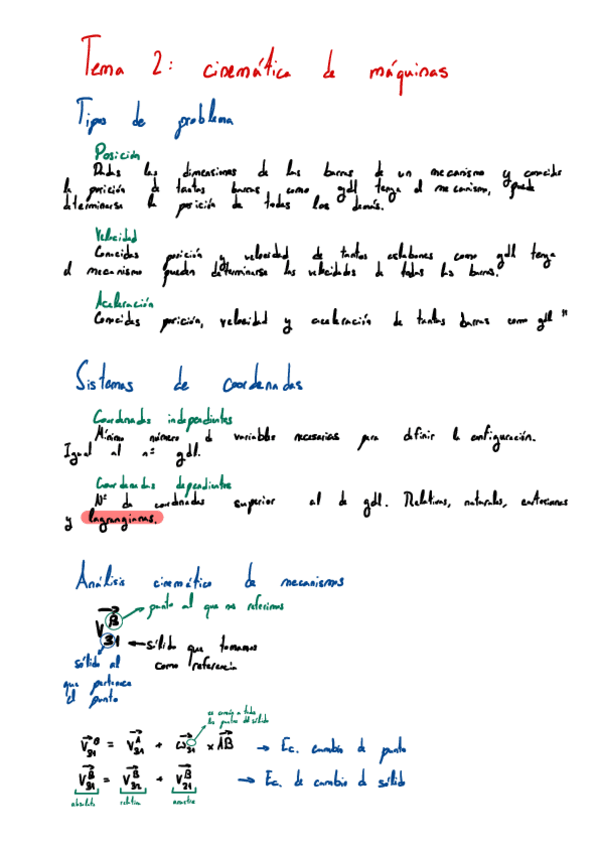 Tema 2: cinemática de máquinas
Tipos de problema
Posición
Dadas las dimensiones de las barras de un mecanismo y conocida
la posición de tantas barras como gdl tenga el mecanismo, puede
determinarse la posición de todas las demás.
Velocidad
Conocidas posición y velocidad de tantos eslabones como gdl tenga
el mecanismo pueden determinarse las velocidades de todas las barras.
Aceleración
Conocidas posición, velocidad y aceleración de tantas barras como gdl "
Sistemas de coordenadas
Coordenadas independientes
Mínimo número de variables necesarias para definir la configuración.
Igual al nº gdl.
Coordenadas dependientes
Nº de coordenadas superior al de gdl. Relativas, naturales, cartesianas
y lagrangianas.
Análisis cinemático de mecanismos
punto al que nos referimos
V⃗ᴮ₃₁
sólido que tomamos
como referencia
sólido al
que pertenece
el punto
es común a todos
los puntos del sólido
V⃗ᴮ₃₁ = V⃗ᴬ₃₁ + ω⃗₃₁ × AB⃗ → Ec. cambio de punto
V⃗ᴮ₃₁ = V⃗ᴮ₃₂ + V⃗ᴮ₂₁ → Ec. de cambio de sólido
absoluta relativa arrastre